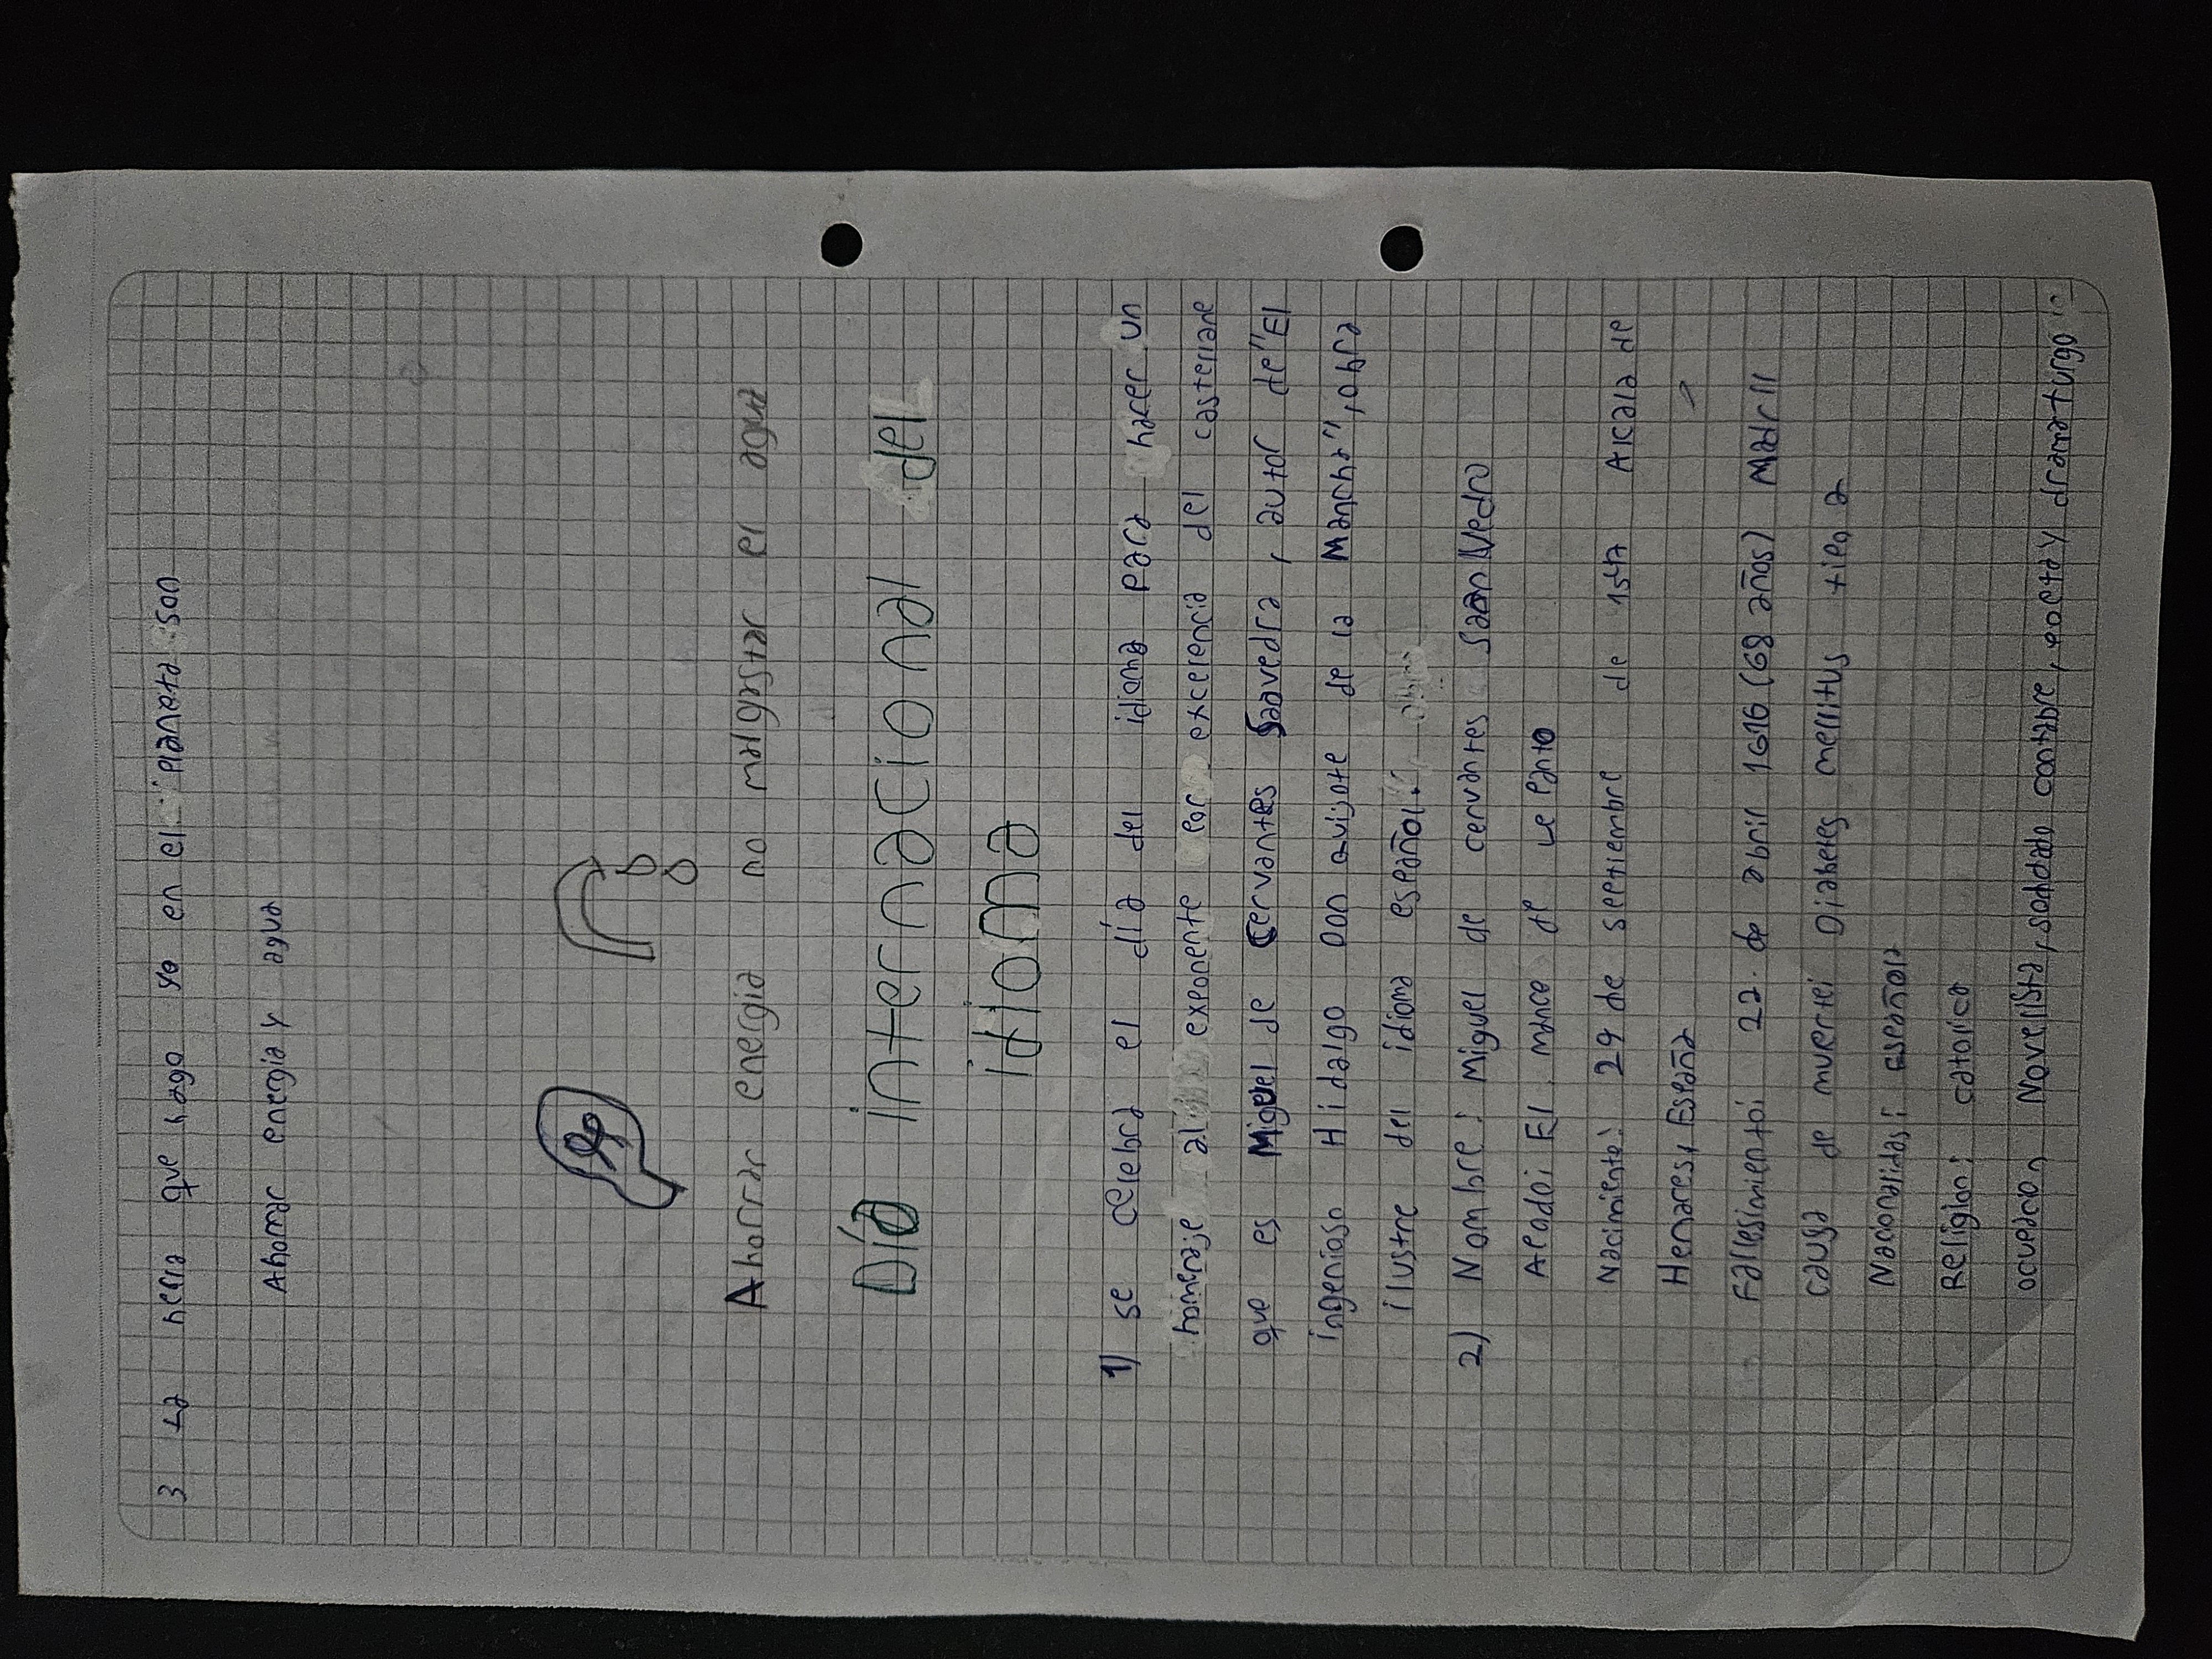 3 La heella que hago yo en el planeta son
Ahorrar energia y agua
Ahorrar energia no malgastar el agua
Día internacional del
idioma
1) se celebra el día del idioma para hacer un
homenaje al exponente por excelencia del castellano
que es Miguel de Cervantes Saavedra, autor de "El
ingenioso Hidalgo Don quijote de la Mancha", obra
ilustre del idioma español.
2) Nombre: Miguel de cervantes Vedro
Apodo: El manco de le panto
Nacimiento: 29 de septiembre de 1547 Alcala de
Henares, España
Fallesimiento: 22 de abril 1616 (68 años) Madrll
causa de muerte: Diabetes mellitus tipo 2
Nacionalidas: española
Religion: catolica
ocupacion Novelista, soldado contable, poeta y dramaturgo